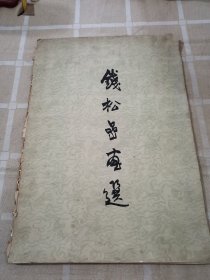 錢松嵒畫選